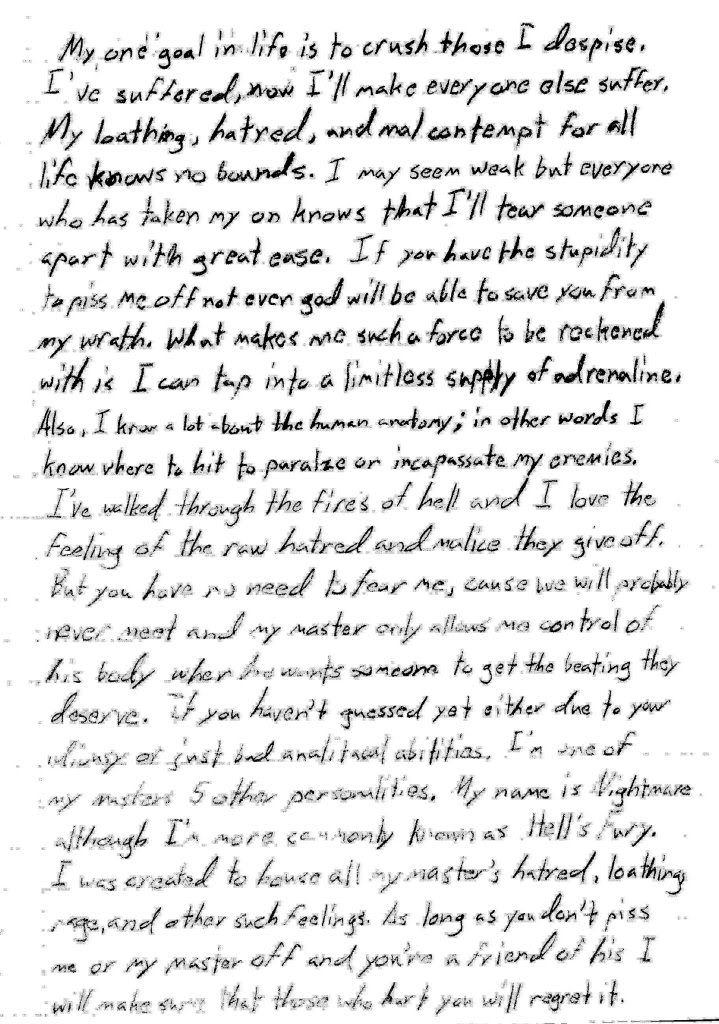 My one goal in life is to crush those I despise.
I've suffered, now I'll make everyone else suffer.
My loathing, hatred, and mal contempt for all
life knows no bounds. I may seem weak but everyone
who has taken my on knows that I'll tear someone
apart with great ease. If you have the stupidity
to piss me off not even god will be able to save you from
my wrath. What makes me such a force to be reckened
with is I can tap into a limitless supply of adrenaline.
Also, I know a lot about the human anatomy; in other words I
know where to hit to paralze or incapassate my enemies.
I've walked through the fires of hell and I love the
feeling of the raw hatred and malice they give off.
But you have no need to fear me, cause we will probably
never meet and my master only allows me control of
his body when he wants someone to get the beating they
deserve. If you haven't guessed yet either due to your
or just bad abilities. I'm one of
my masters 5 other personalities. My name is Nightmare
although I'm more commonly known as Hell's Fury.
I was created to house all my master's hatred, loathing,
rage, and other such feelings. As long as you don't piss
me or my master off and you're a friend of his I
will make sure that those who hurt you will regret it.